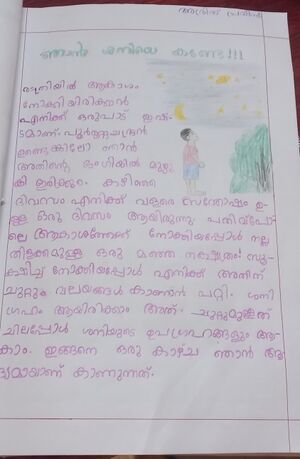 അരവിന്ദ് പ്രവീൺ
ഞാൻ ശനിയെ കണ്ടേ!!!
രാത്രിയിൽ ആകാശം
നോക്കിയിരിക്കാൻ
എനിക്ക് ഒരുപാട് ഇഷ്
ടമാണ്. പൂർണ്ണചന്ദ്രൻ
ഉണ്ടെങ്കിലോ ഞാൻ
അതിന്റെ ഭംഗിയിൽ മുഴു
കി ഇരിക്കും. കഴിഞ്ഞ
ദിവസം എനിക്ക് വളരെ സന്തോഷം ഉ-
ള്ള ഒരു ദിവസം ആയിരുന്നു. പതിവുപോ
ലെ ആകാശത്തേക്ക് നോക്കിയപ്പോൾ നല്ല
തിളക്കമുള്ള ഒരു മഞ്ഞ നക്ഷത്രം! സൂ-
ക്ഷിച്ച് നോക്കിയപ്പോൾ എനിക്ക് അതിന്
ചുറ്റും വലയങ്ങൾ കാണാൻ പറ്റി. ശനി
ഗ്രഹം ആയിരിക്കാം അത്. ചുറ്റുമുള്ളത്
ചിലപ്പോൾ ശനിയുടെ ഉപഗ്രഹങ്ങളും ആ-
കാം. ഇങ്ങനെ ഒരു കാഴ്ച ഞാൻ ആ
ദ്യമായാണ് കാണുന്നത്.